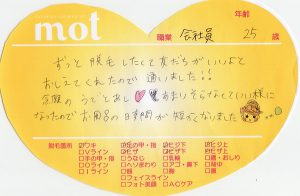 mot
年齢
職業 会社員 25 歳
ずっと脱毛したくて友だちがいいよと
おしえてくれたので通いました!!
念願のうでとあし あまりそらなくていい様に
なったのでお風呂の時間が短くなりました
脱毛箇所 ワキ 足の甲・指 ヒジ下 ヒジ上
Vライン ヒザ ヒザ下 ヒザ上
手の甲・指 うなじ 乳輪 歯・おしり
Iライン へそまわり アゴ・鼻下 背中
Oライン 顔 胸 腹
フェイスライン
フォト美顔 ACケア